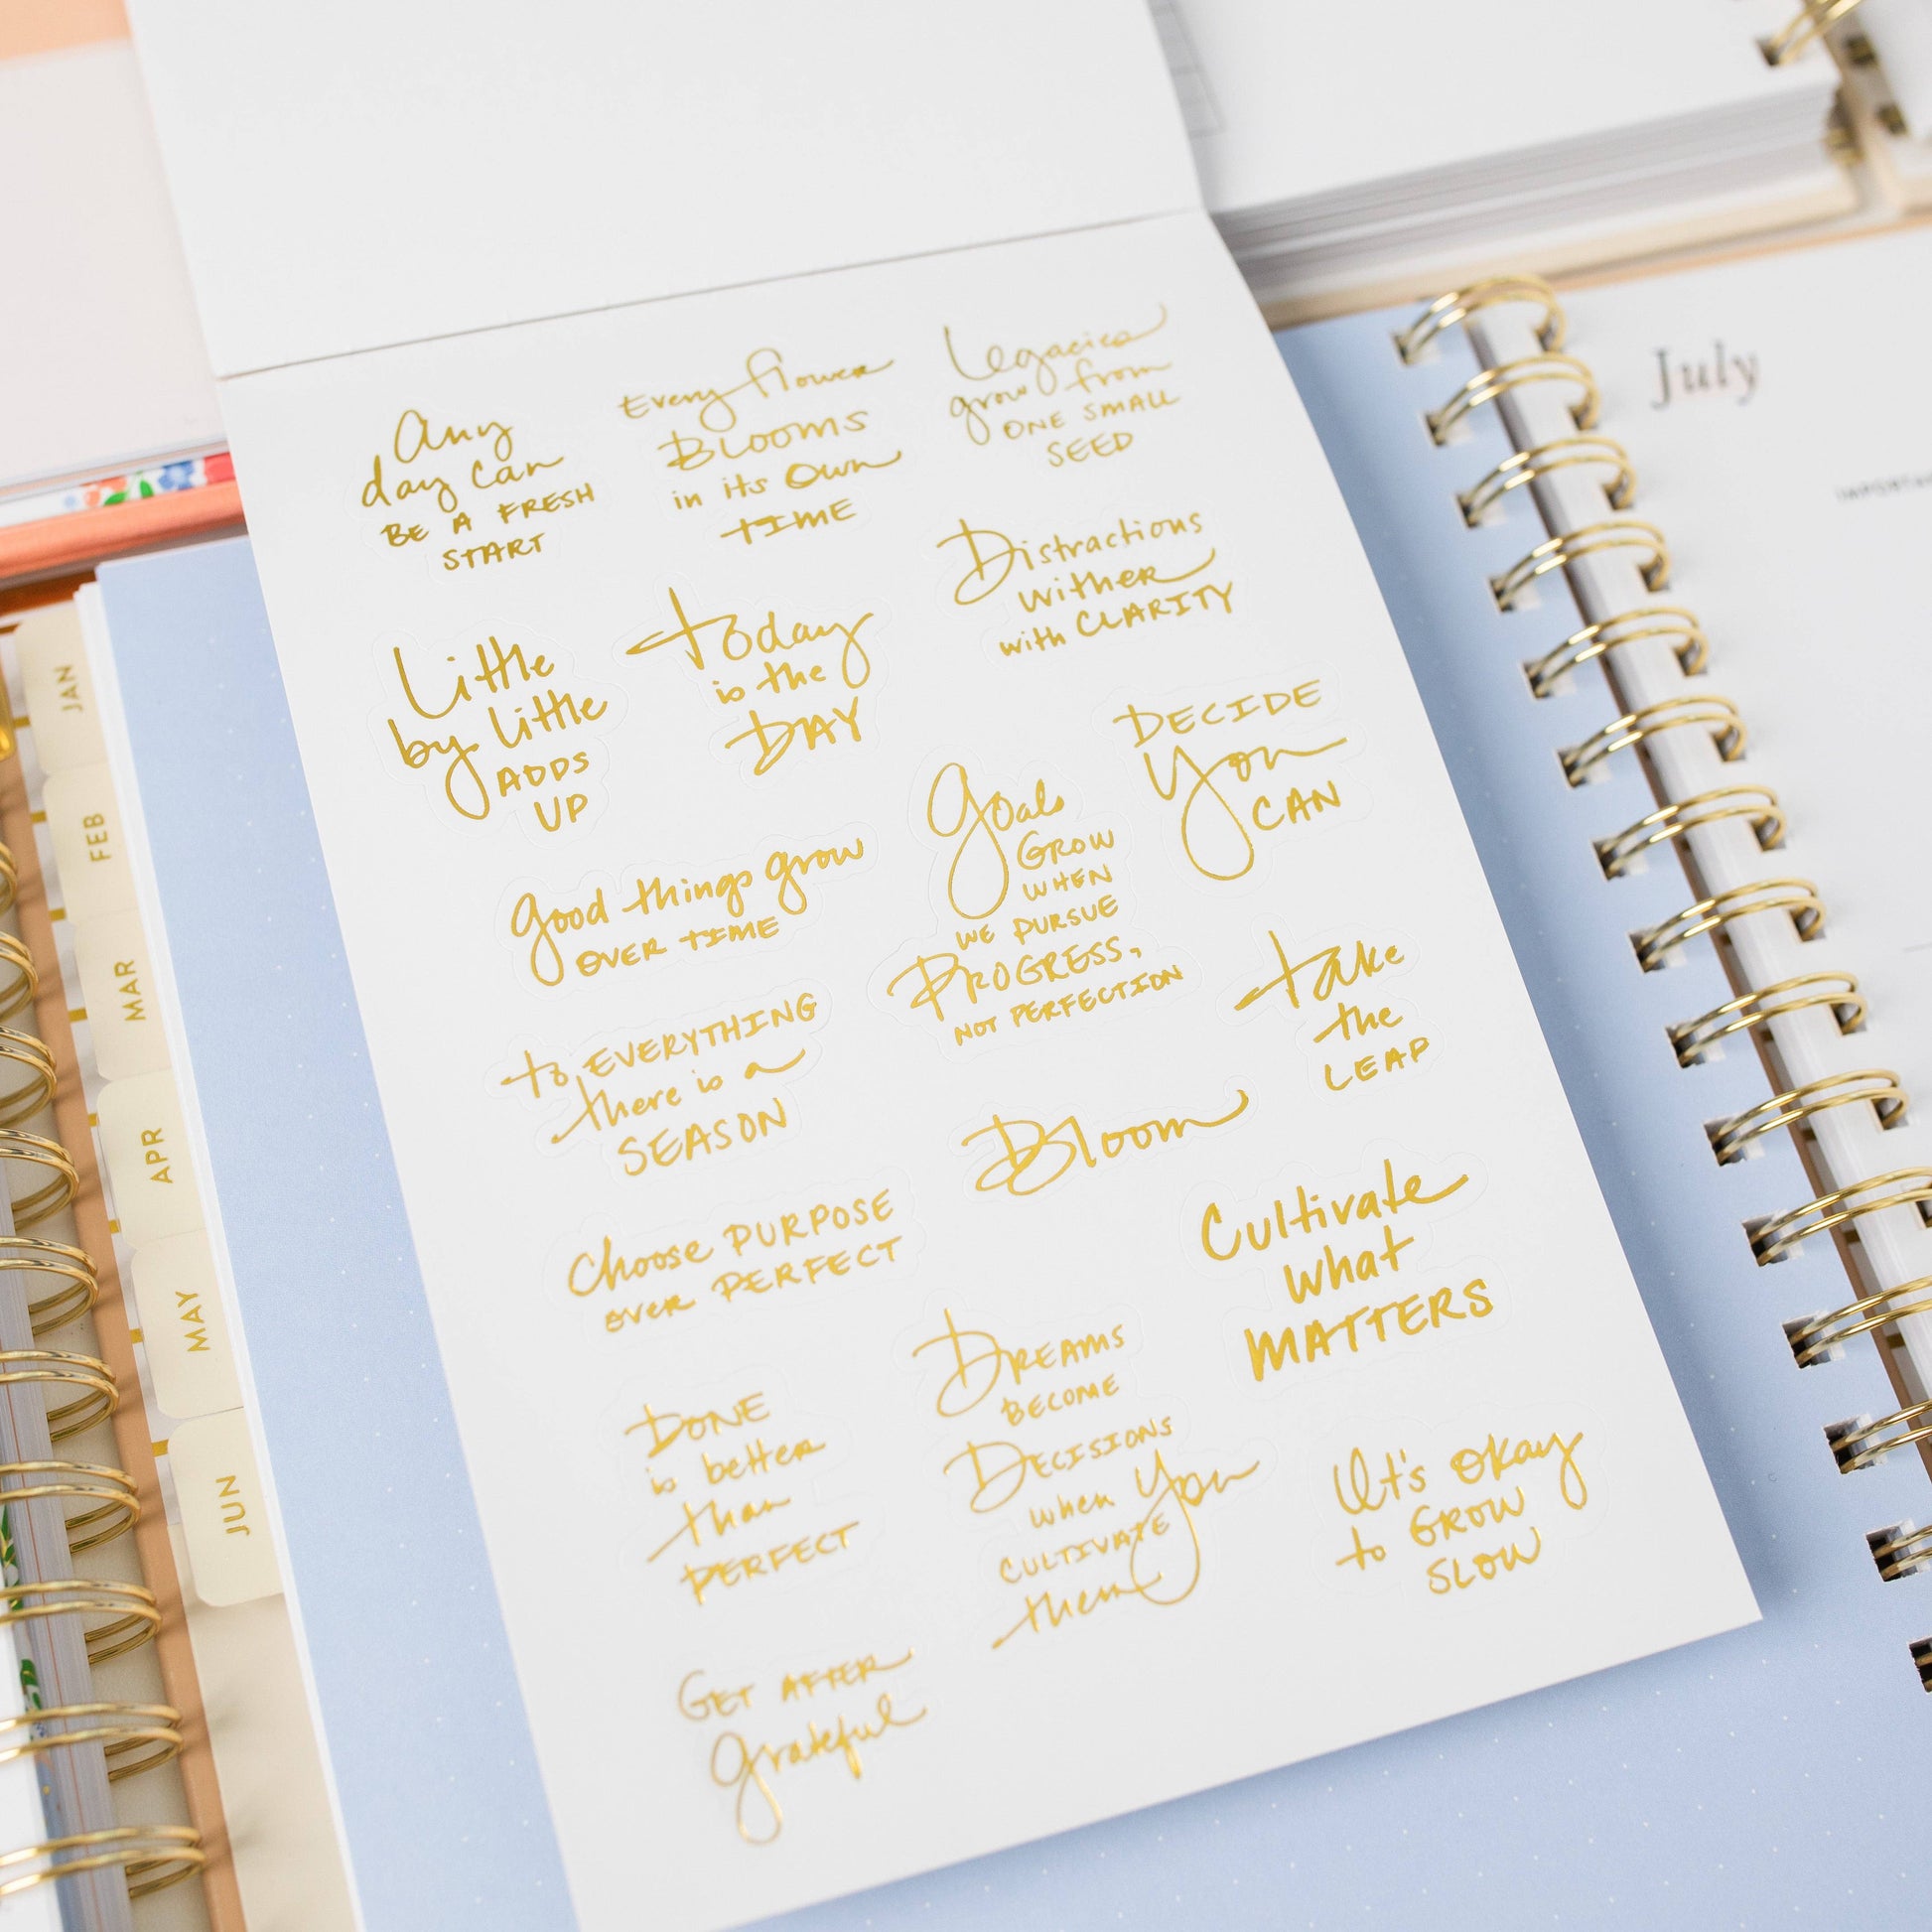 Any
day can
BE A FRESH
START
Every flower
BLOOMS
in its own
TIME
Legacies
grow from
ONE SMALL
SEED
Distractions
wither
with CLARITY
Little
by little
ADDS
UP
Today
is the
DAY
DECIDE
You
CAN
Goals
GROW
WHEN
WE PURSUE
PROGRESS,
NOT PERFECTION
good things grow
OVER TIME
take
the
LEAP
to EVERYTHING
there is a
SEASON
Bloom
Choose PURPOSE
over PERFECT
Cultivate
what
MATTERS
DREAMS
BECOME
DECISIONS
when you
CULTIVATE
them
DONE
is better
than
PERFECT
It's okay
to GROW
SLOW
GET AFTER
grateful
July
JAN
FEB
MAR
APR
MAY
JUN